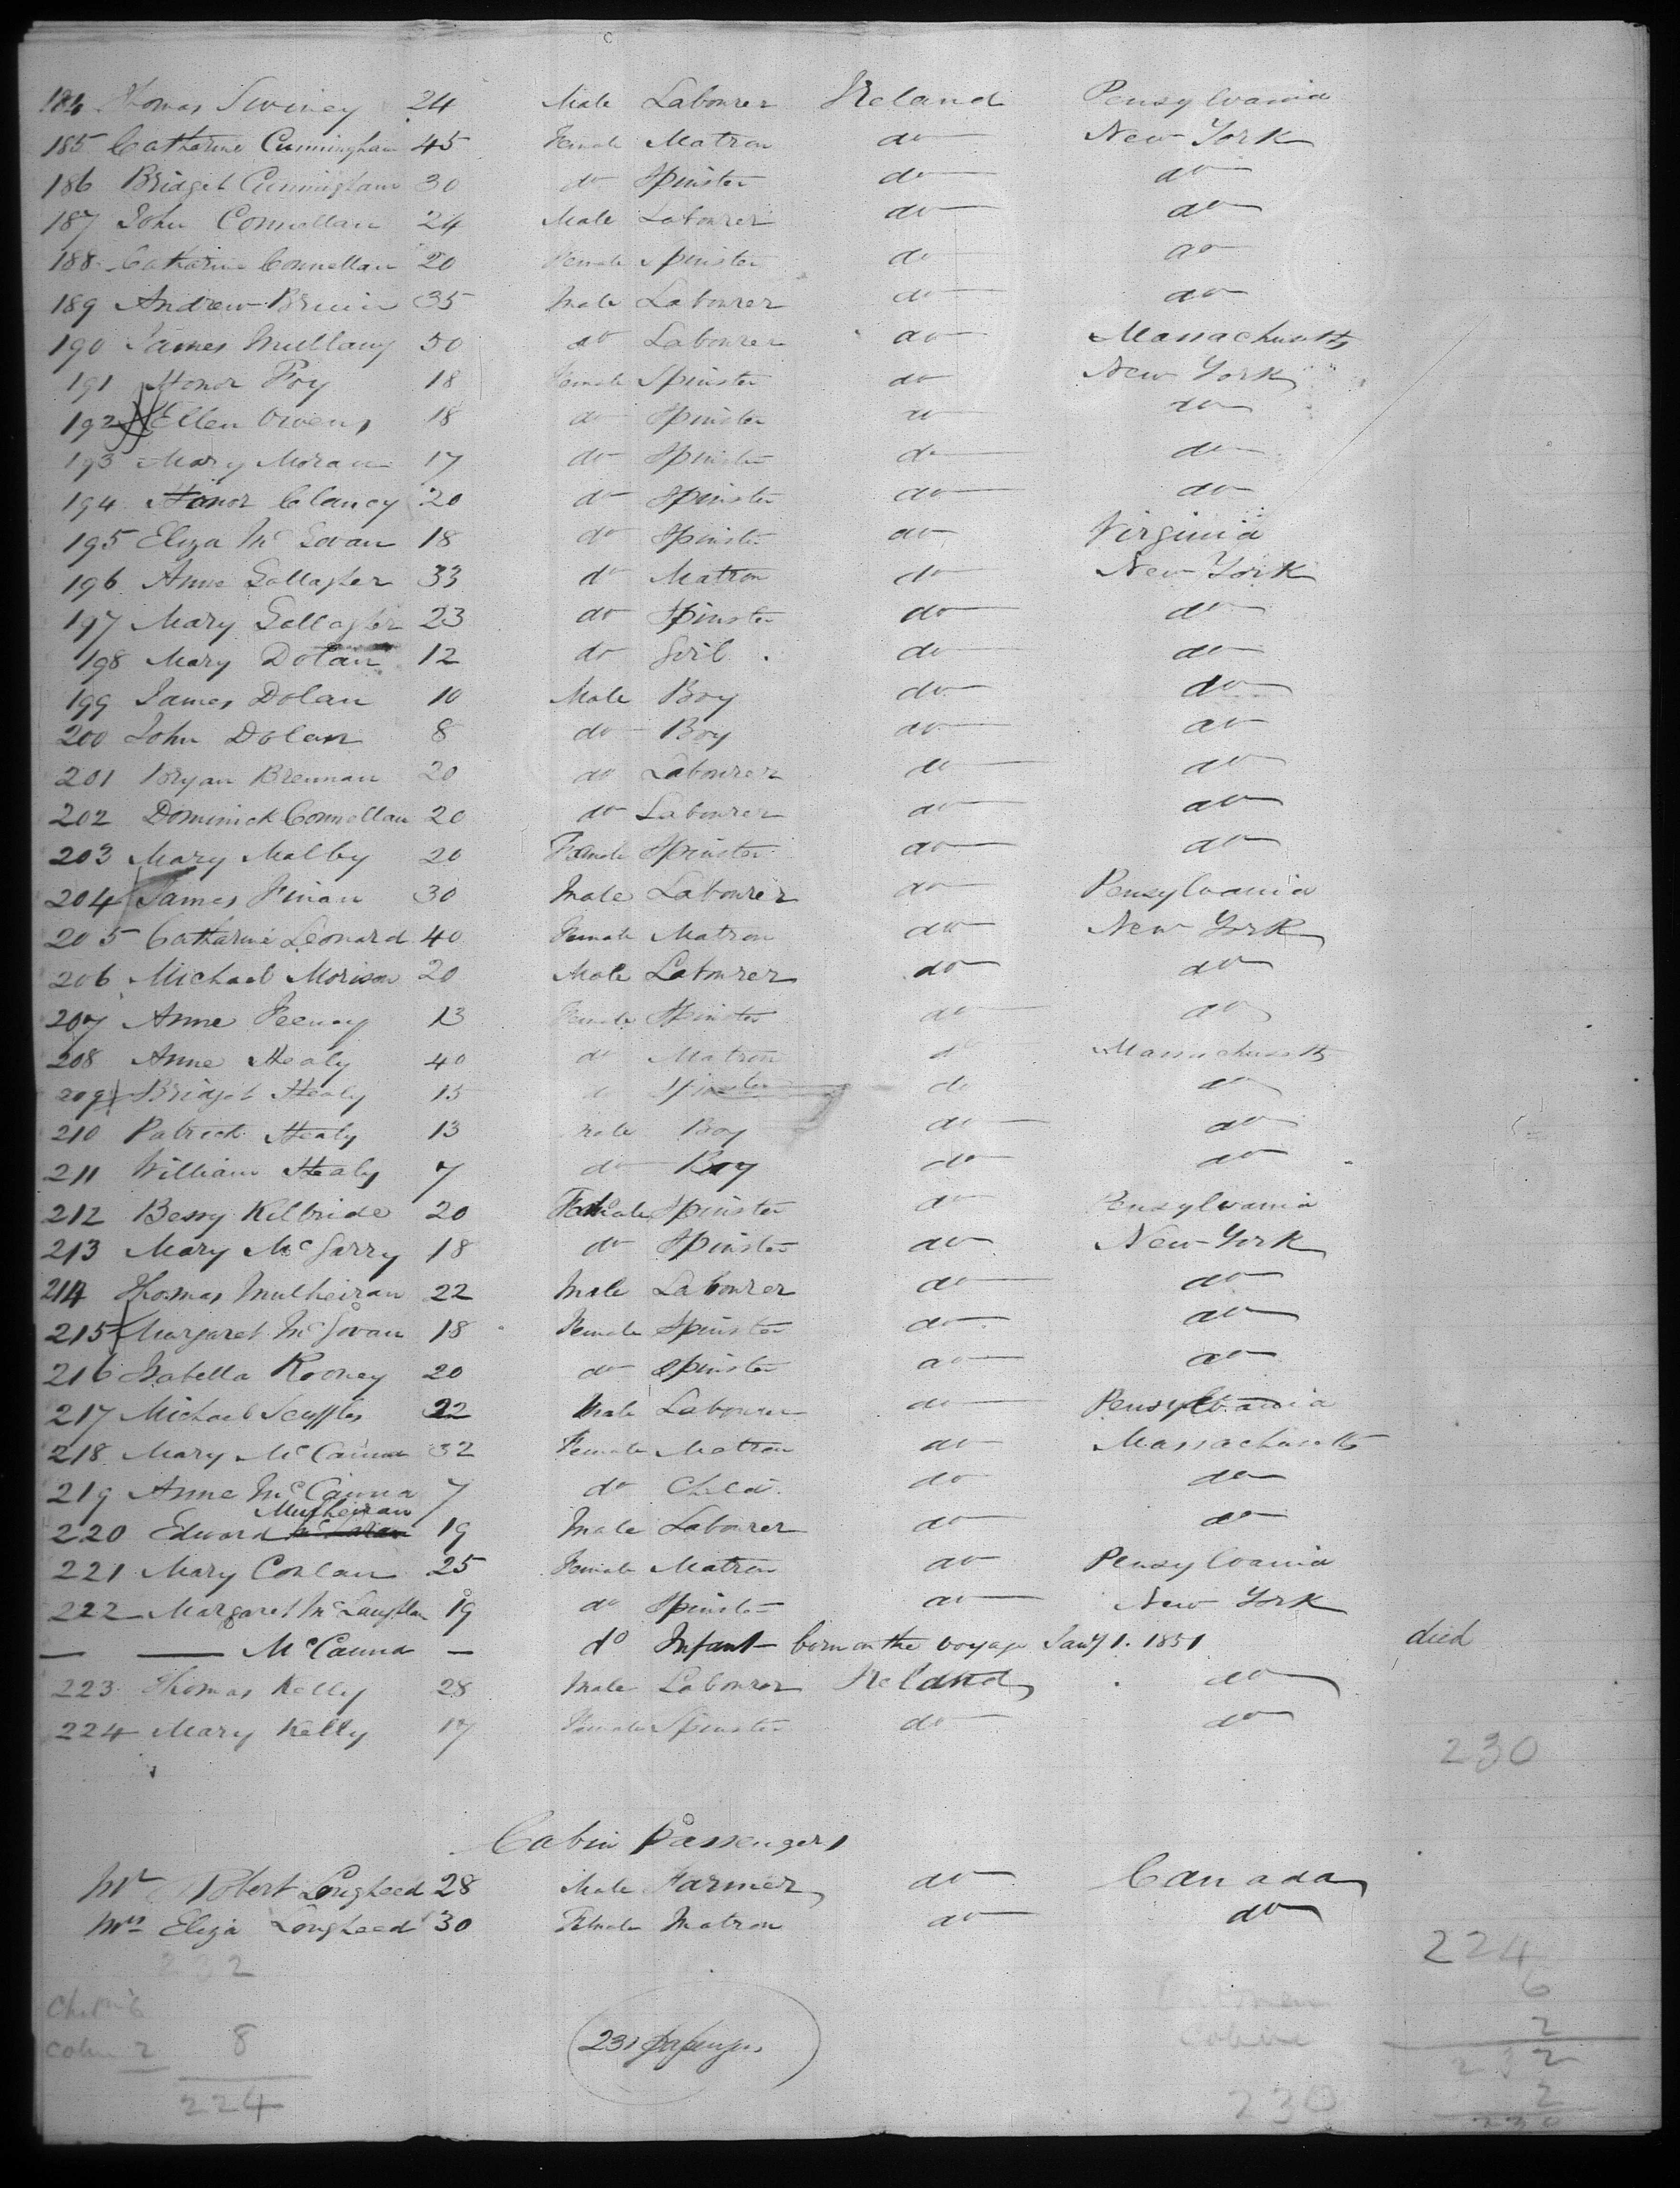 184 Thomas Swiney 24 Male Labourer Ireland Pensylvania
185 Catharine Cunningham 45 Female Matron do New York
186 Bridget Cunningham 30 do Spinster do do
187 John Connollan 24 Male Labourer do do
188 Catharine Connellan 20 Female Spinster do do
189 Andrew Bruin 35 Male Labourer do do
190 James Mullany 50 do Labourer do Massachusetts
191 Honor Foy 18 Female Spinster do New York
192 Ellen Owens 18 do Spinster do do
193 Mary Moran 17 do Spinster do do
194 Honor Clancy 20 do Spinster do do
195 Eliza McGovan 18 do Spinster do Virginia
196 Anne Gallagher 33 do Matron do New York
197 Mary Gallagher 23 do Spinster do do
198 Mary Dolan 12 do Girl do do
199 James Dolan 10 Male Boy do do
200 John Dolan 8 do Boy do do
201 Bryan Brennan 20 do Labourer do do
202 Dominick Connollan 20 do Labourer do do
203 Mary Malby 20 Female Spinster do do
204 James Finan 30 Male Labourer do Pensylvania
205 Catharine Leonard 40 Female Matron do New York
206 Michael Morison 20 Male Labourer do do
207 Anne Feeney 13 Female Spinster do do
208 Anne Healy 40 do Matron do Massachusetts
209 Bridget Healy 15 do Spinster do do
210 Patrick Healy 13 Male Boy do do
211 William Healy 7 do Boy do do
212 Bessy Kilbride 20 Female Spinster do Pensylvania
213 Mary McGarry 18 do Spinster do New York
214 Thomas Mulheiran 22 Male Labourer do do
215 Margaret McGovan 18 Female Spinster do do
216 Isabella Rooney 20 do Spinster do do
217 Michael Scuffles 22 Male Labourer do Pensylvania
218 Mary McCanna 32 Female Matron do Massachusetts
219 Anne McCanna 7 do Child do do
Mulheiran
220 Edward 19 Male Labourer do do
221 Mary Conlan 25 Female Matron do Pensylvania
222 Margaret McLaughlan 19 do Spinster do New York
— — McCanna — do Infant born on the voyage Jany 1. 1851 died
223 Thomas Kelly 28 Male Labourer Ireland do
224 Mary Kelly 17 Female Spinster do do
230
Cabin Passengers
Mr Robert Lougheed 28 Male Farmer do Canada
Mrs Eliza Lougheed 30 Female Matron do do
232
224
6
2
8
231 Passengers
232
2
224
230
230